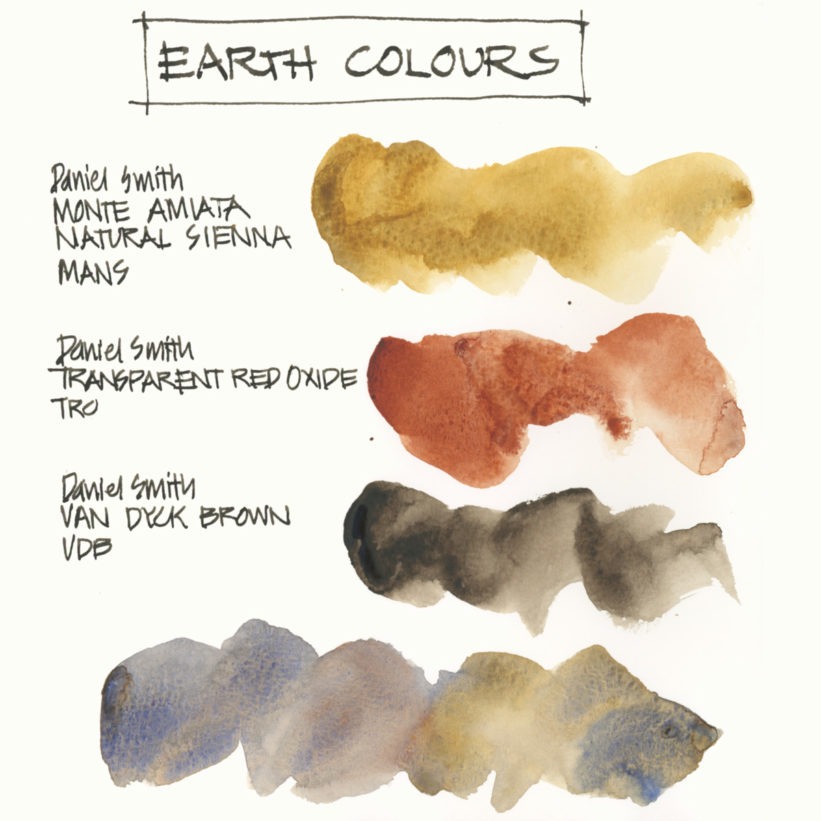 EARTH COLOURS
Daniel Smith
MONTE AMIATA
NATURAL SIENNA
MANS
Daniel Smith
TRANSPARENT RED OXIDE
TRO
Daniel Smith
VAN DYCK BROWN
VDB